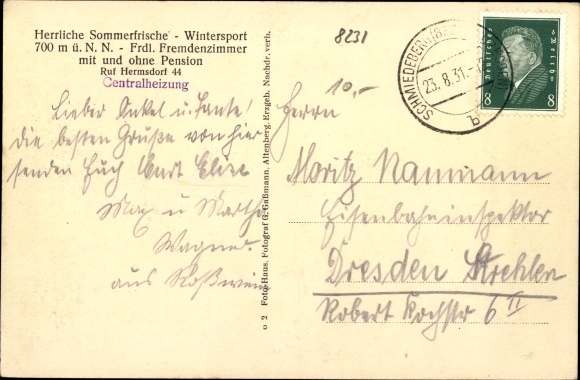 Herrliche Sommerfrische - Wintersport
700 m ü. N. N. - Frdl. Fremdenzimmer
mit und ohne Pension
Ruf Hermsdorf 44
Centralheizung
Lieber Onkel u. Tante!
die besten Grüße von hier
senden Euch Kurt Elise
Max u Martha
Wagner.
aus Roßwein
o 2 Foto-Haus. Fotograf G. Gaßmann, Altenberg, Erzgeb. Nachdr. verb.
8231
10,-
SCHMIEDEBERG (BZ.
23.8.31.
Deutsches Reich
8 8
Herrn
Moritz Naumann
Eisenbahninspektor
Dresden Strehlen
Robert Kochstr 6 II